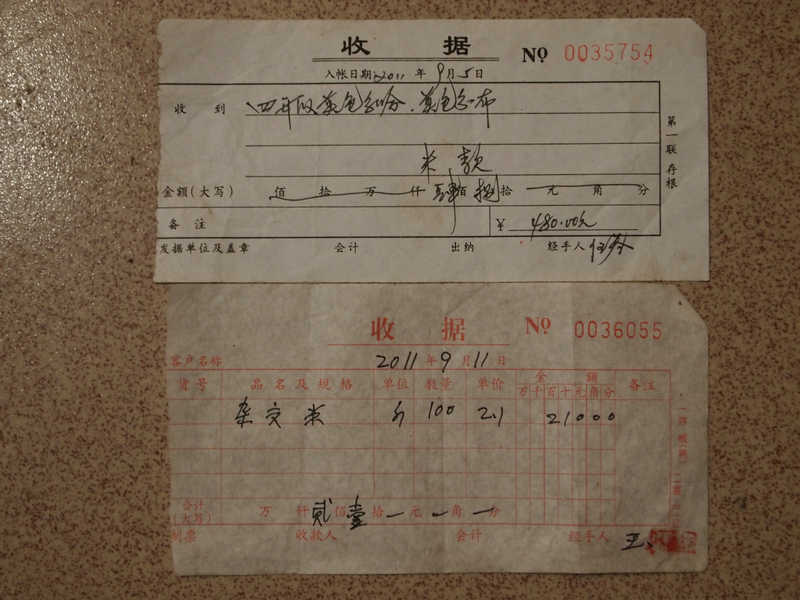 收 据 No 0035754
入帐日期 2011 年 9 月 5 日
收 到
米 款
第一联 存根
金额(大写) 佰 拾 万 仟 肆佰 捌拾 元 角 分
备 注 ¥ 480.00元
发据单位及盖章 会计 出纳 经手人
收 据 No 0036055
客户名称 2011 年 9 月 11 日
货号 品 名 及 规 格 单位 数量 单价 金 额 备注
万 千 百 十 元 角 分
杂交米 斤 100 2.1 21000
合计(大写) 万 仟 贰佰 壹拾 元 角 分
制票 收款人 会计 经手人 王